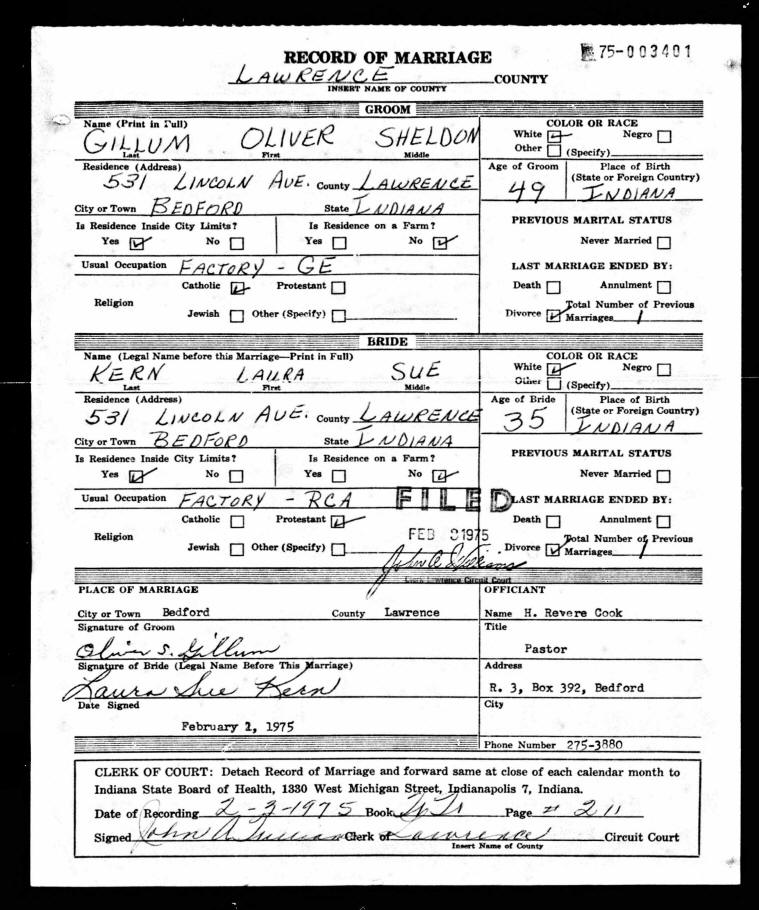 75-003401
RECORD OF MARRIAGE
LAWRENCE COUNTY
INSERT NAME OF COUNTY
GROOM
Name (Print in Full)
GILLUM OLIVER SHELDON
Last First Middle
COLOR OR RACE
White ☑ Negro ☐
Other ☐ (Specify)
Residence (Address)
531 LINCOLN AVE. County LAWRENCE
City or Town BEDFORD State INDIANA
Age of Groom
49
Place of Birth
(State or Foreign Country)
INDIANA
Is Residence Inside City Limits?
Yes ☑ No ☐
Is Residence on a Farm?
Yes ☐ No ☑
PREVIOUS MARITAL STATUS
Never Married ☐
Usual Occupation FACTORY - GE
LAST MARRIAGE ENDED BY:
Death ☐ Annulment ☐
Divorce ☑ Total Number of Previous
Marriages 1
Religion
Catholic ☑ Protestant ☐
Jewish ☐ Other (Specify) ☐
BRIDE
Name (Legal Name before this Marriage—Print in Full)
KERN LAURA SUE
Last First Middle
COLOR OR RACE
White ☑ Negro ☐
Other ☐ (Specify)
Residence (Address)
531 LINCOLN AVE. County LAWRENCE
City or Town BEDFORD State INDIANA
Age of Bride
35
Place of Birth
(State or Foreign Country)
INDIANA
Is Residence Inside City Limits?
Yes ☑ No ☐
Is Residence on a Farm?
Yes ☐ No ☑
PREVIOUS MARITAL STATUS
Never Married ☐
Usual Occupation FACTORY - RCA
FILED
LAST MARRIAGE ENDED BY:
Death ☐ Annulment ☐
Divorce ☑ Total Number of Previous
Marriages 1
Religion
Catholic ☐ Protestant ☑
Jewish ☐ Other (Specify) ☐
FEB 1975
John A.
Clerk Lawrence Circuit Court
PLACE OF MARRIAGE
City or Town Bedford County Lawrence
Signature of Groom
Oliver S. Gillum
Signature of Bride (Legal Name Before This Marriage)
Laura Sue Kern
Date Signed
February 2, 1975
OFFICIANT
Name H. Revere Cook
Title
Pastor
Address
R. 3, Box 392, Bedford
City
Phone Number 275-3880
CLERK OF COURT: Detach Record of Marriage and forward same at close of each calendar month to
Indiana State Board of Health, 1330 West Michigan Street, Indianapolis 7, Indiana.
Date of Recording 2-3-1975 Book Page # 211
Signed John A. Clerk of Lawrence Circuit Court
Insert Name of County